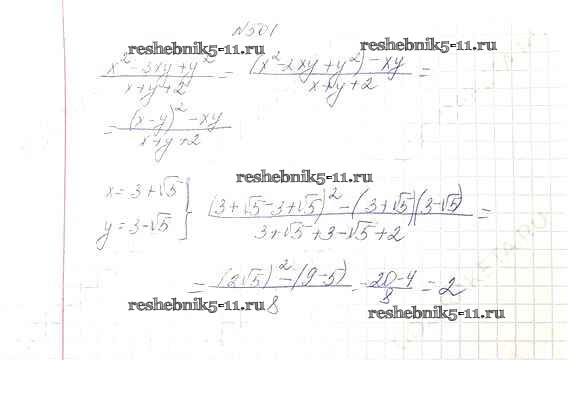 N501
reshebnik5-11.ru reshebnik5-11.ru
(x² - 3xy + y²)/(x + y + 2) = ((x² - 2xy + y²) - xy)/(x + y + 2) =
= ((x - y)² - xy)/(x + y + 2)
reshebnik5-11.ru
x = 3 + √5
y = 3 - √5 }
((3 + √5 - 3 + √5)² - (3 + √5)(3 - √5))/(3 + √5 + 3 - √5 + 2) =
= ((2√5)² - (9 - 5))/8 = (20 - 4)/8 = 2
reshebnik5-11.ru reshebnik5-11.ru